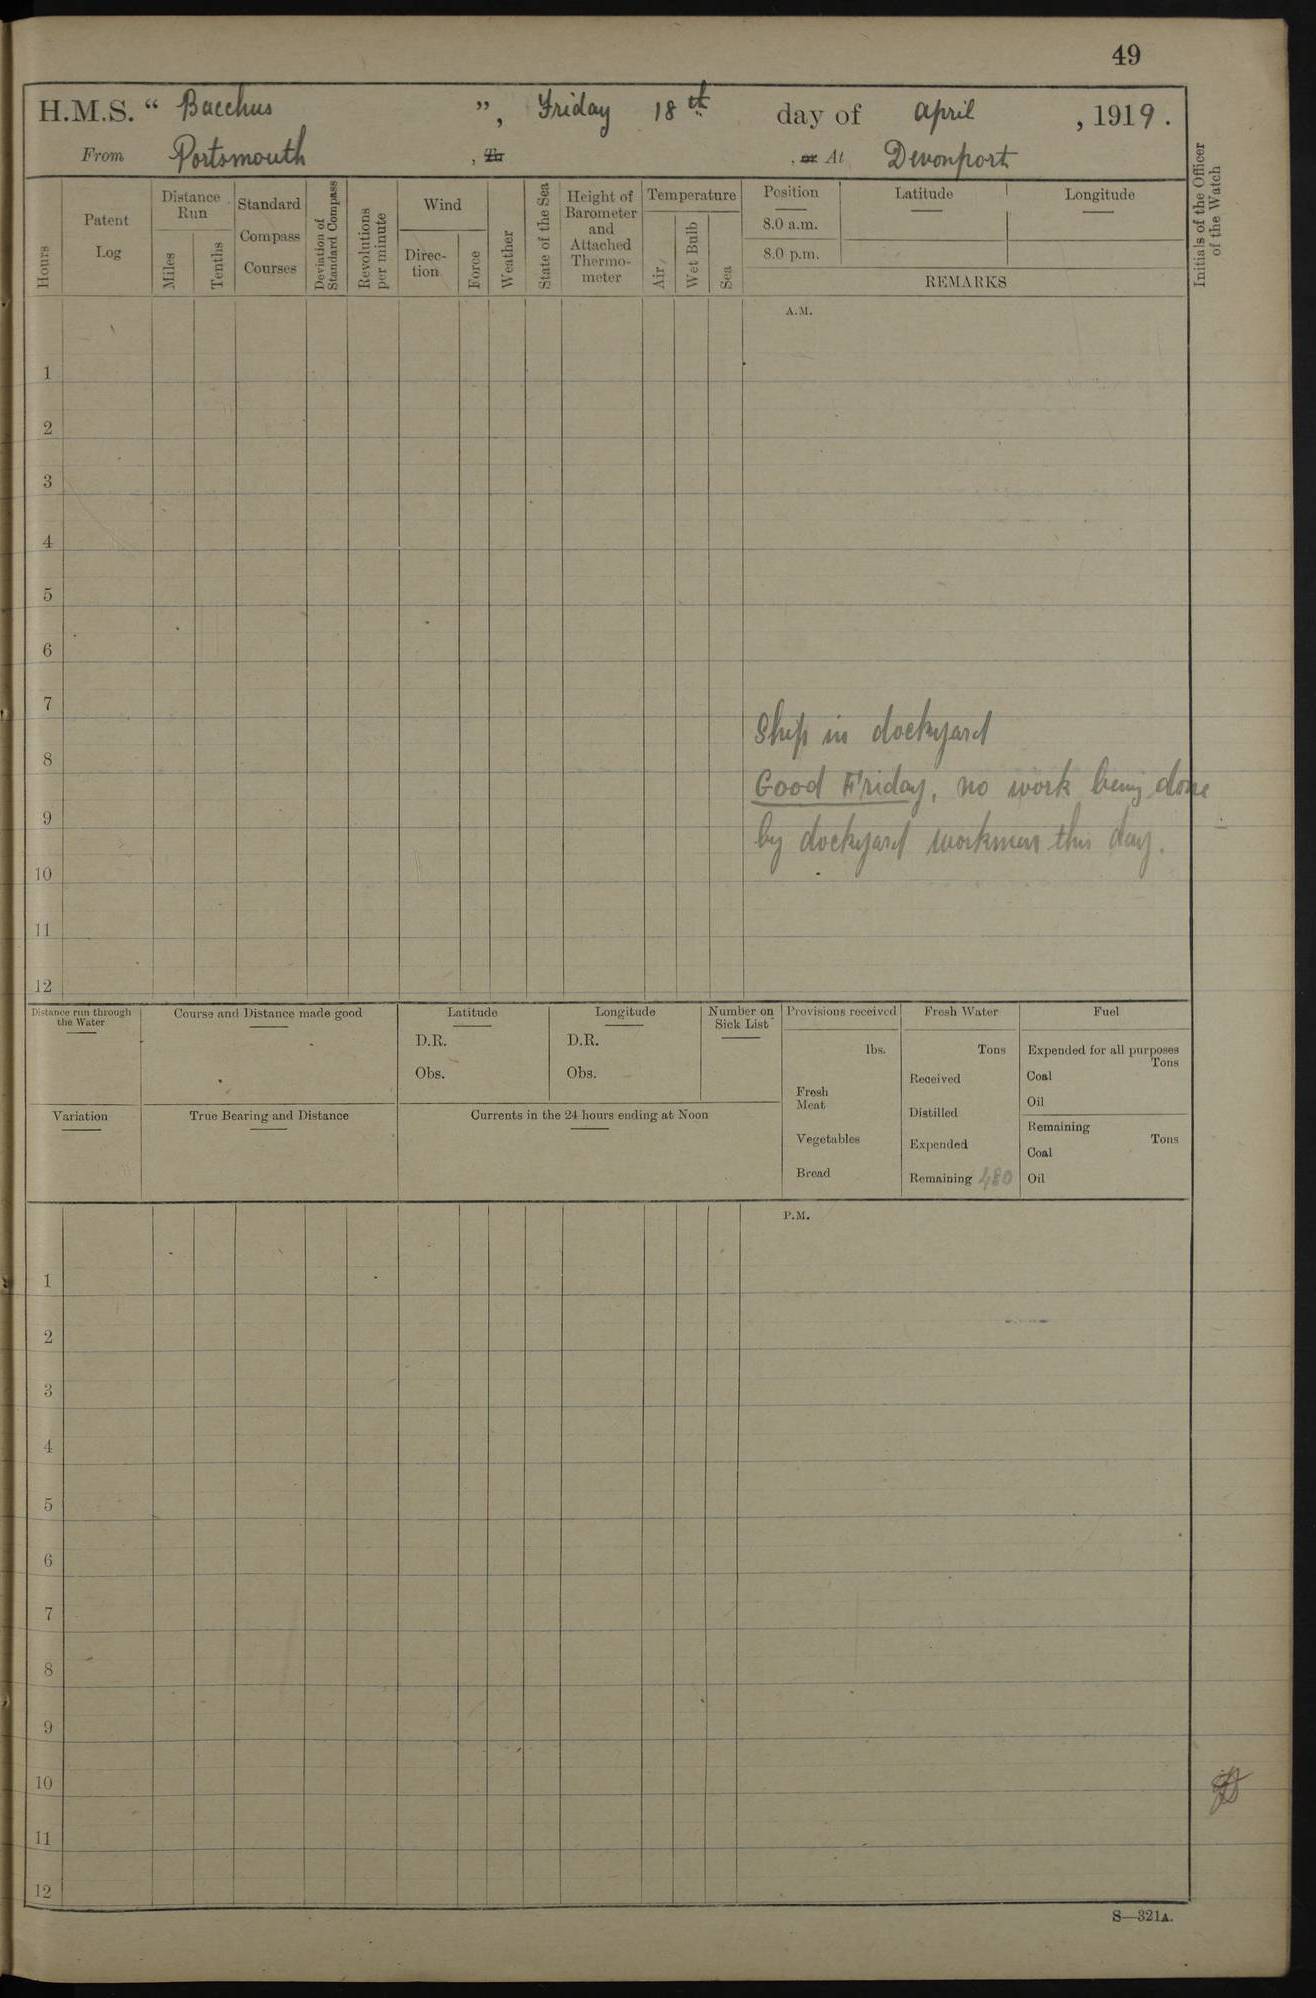 49
H.M.S. “ Bacchus ”, Friday 18th day of April , 1919.
From Portsmouth , To , or At Devonport
Hours
Patent Log
Distance Run
Miles
Tenths
Standard Compass Courses
Deviation of Standard Compass
Revolutions per minute
Wind
Direc-tion
Force
Weather
State of the Sea
Height of Barometer and Attached Thermo-meter
Temperature
Air
Wet Bulb
Sea
Position
8.0 a.m.
8.0 p.m.
Latitude
Longitude
REMARKS
Initials of the Officer of the Watch
A.M.
1
2
3
4
5
6
7
Ship in dockyard
8
Good Friday, no work being done
9
by dockyard workmen this day.
10
11
12
Distance run through the Water
Course and Distance made good
Latitude
D.R.
Obs.
Longitude
D.R.
Obs.
Number on Sick List
Provisions received
lbs.
Fresh Meat
Vegetables
Bread
Fresh Water
Tons
Received
Distilled
Expended
Remaining 480
Fuel
Expended for all purposes
Tons
Coal
Oil
Remaining
Tons
Coal
Oil
Variation
True Bearing and Distance
Currents in the 24 hours ending at Noon
P.M.
1
2
3
4
5
6
7
8
9
10
11
12
S—321A.